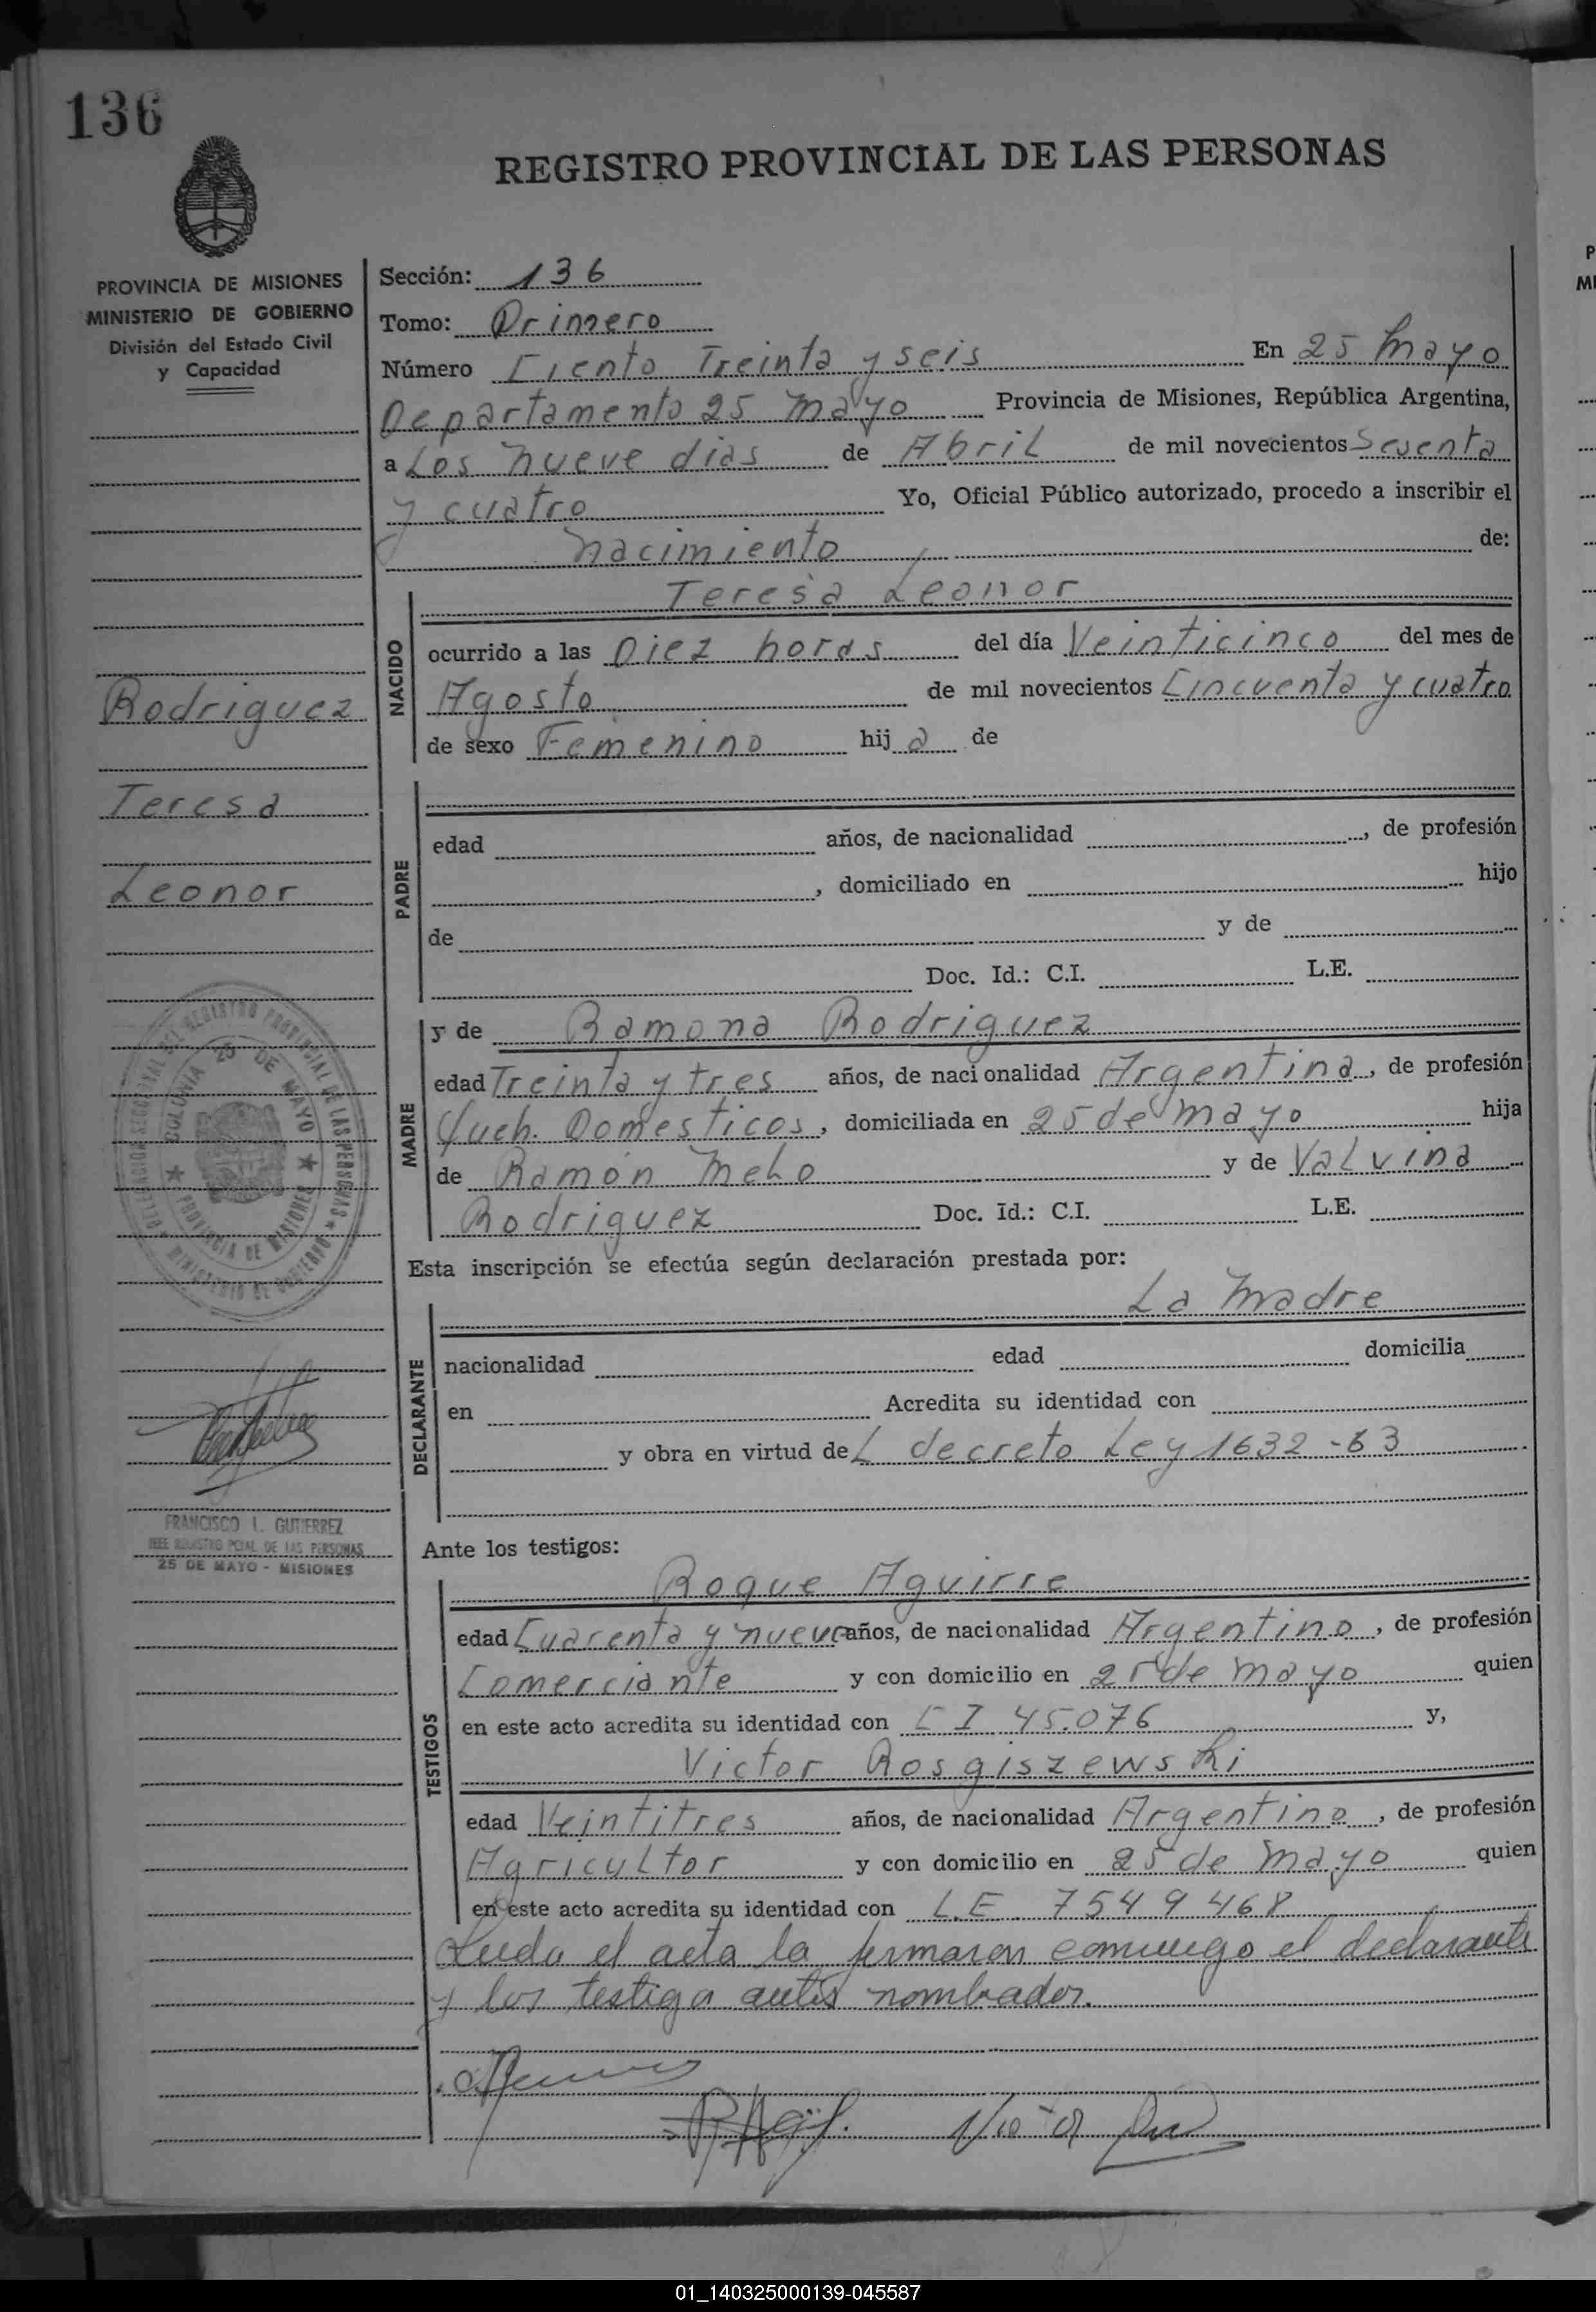 136
REGISTRO PROVINCIAL DE LAS PERSONAS
PROVINCIA DE MISIONES
MINISTERIO DE GOBIERNO
División del Estado Civil
y Capacidad
Sección: 136
Tomo: Primero
Número Ciento Treinta y seis En 25 Mayo
Departamento 25 Mayo Provincia de Misiones, República Argentina,
a Los nueve dias de Abril de mil novecientos Sesenta
y cuatro Yo, Oficial Público autorizado, procedo a inscribir el
nacimiento de:
Teresa Leonor
NACIDO
ocurrido a las Diez horas del día Veinticinco del mes de
Agosto de mil novecientos Cincuenta y cuatro
de sexo Femenino hij a de
Rodriguez
Teresa
Leonor
PADRE
edad años, de nacionalidad , de profesión
, domiciliado en hijo
de y de
Doc. Id.: C.I. L.E.
MADRE
y de Ramona Rodriguez
edad Treinta y tres años, de nacionalidad Argentina, de profesión
Queh. Domesticos, domiciliada en 25 de Mayo hija
de Ramón Melo y de Valvina
Rodriguez Doc. Id.: C.I. L.E.
DELEGACION SECCIONAL DEL REGISTRO PROVINCIAL DE LAS PERSONAS ★ MINISTERIO DE GOBIERNO ★
COLONIA 25 DE MAYO ★ PROVINCIA DE MISIONES ★
Esta inscripción se efectúa según declaración prestada por:
La Madre
DECLARANTE
nacionalidad edad domicilia
en Acredita su identidad con
y obra en virtud del decreto Ley 1632-63
FRANCISCO I. GUTIERREZ
JEFE REGISTRO PCIAL DE LAS PERSONAS
25 DE MAYO - MISIONES
Ante los testigos:
Roque Aguirre
TESTIGOS
edad Cuarenta y nueve años, de nacionalidad Argentino, de profesión
Comerciante y con domicilio en 25 de Mayo quien
en este acto acredita su identidad con C I 45.076 y,
Victor Rosgiszewski
edad Veintitres años, de nacionalidad Argentino, de profesión
Agricultor y con domicilio en 25 de Mayo quien
en este acto acredita su identidad con L.E. 7549468
Leida el acta la firmaron conmigo el declarante
y los testigo antes nombrados.
01_140325000139-045587